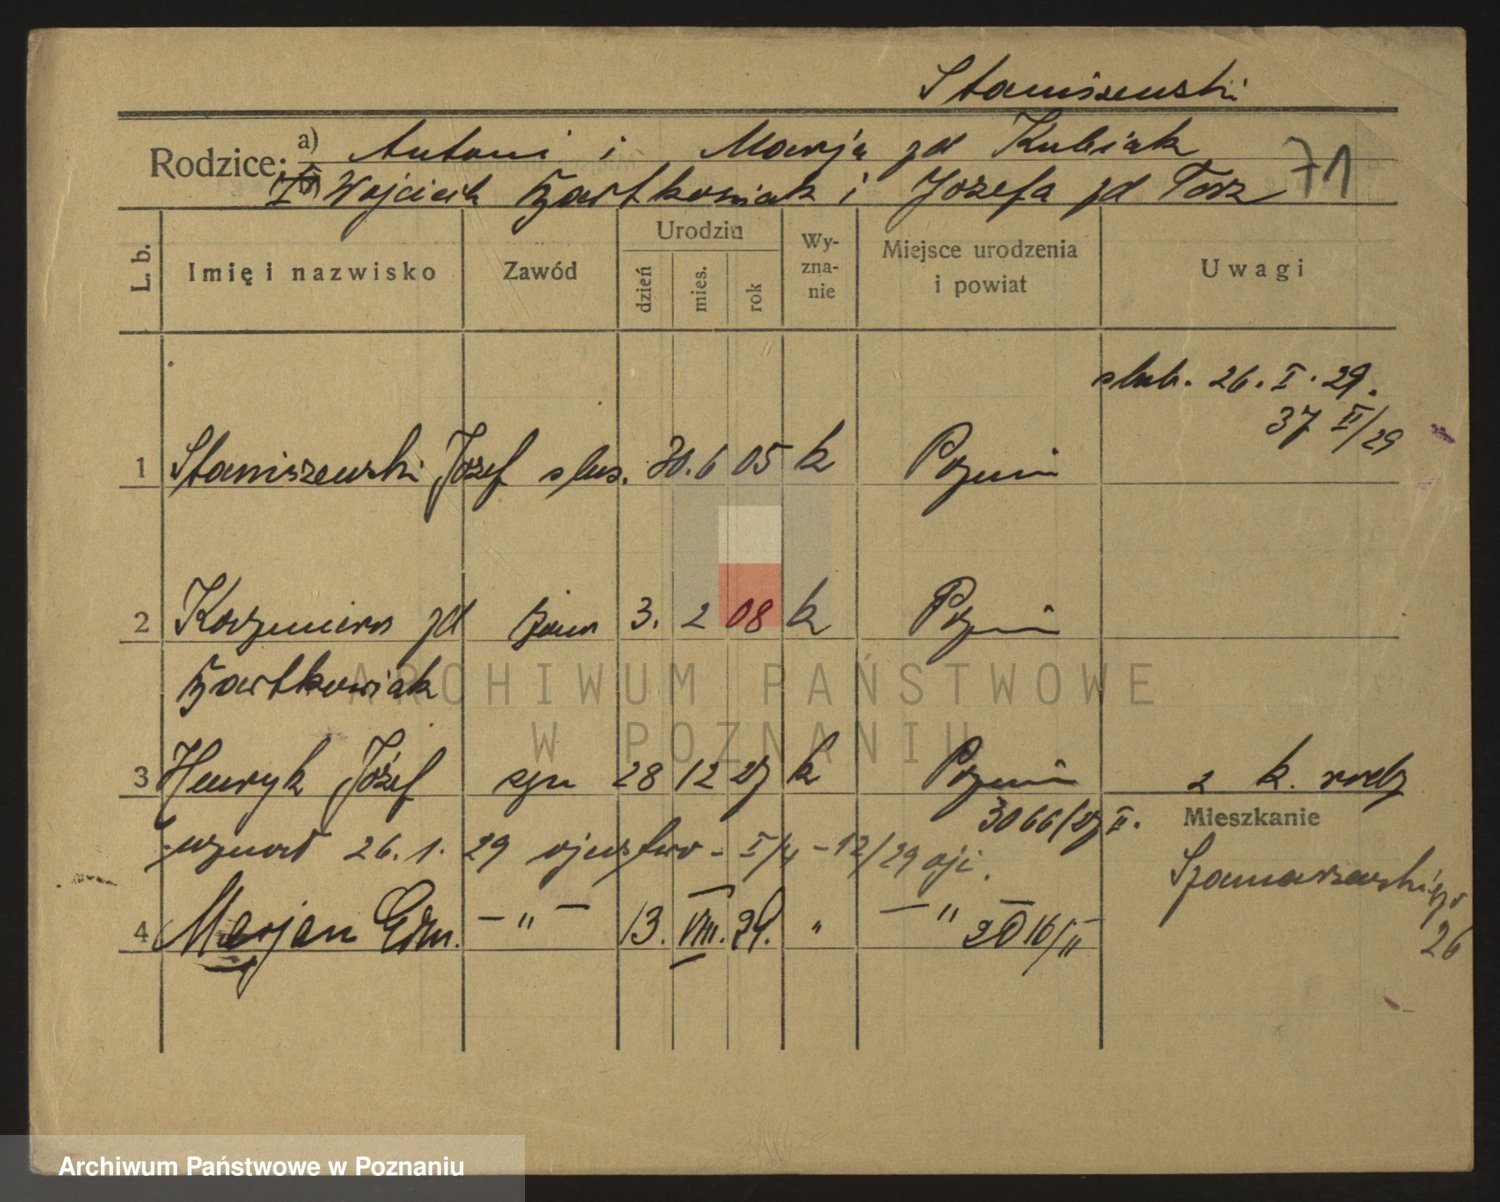 Staniszewski
Rodzice: a) Antoni i Marja zd Kubiak
b) Wojciech Bartkowiak i Józefa zd Torz
71
L. b. Imię i nazwisko Zawód Urodziu dzień mies. rok Wy-zna-nie Miejsce urodzenia i powiat Uwagi
ślub. 26. I. 29.
37 II/29
1 Staniszewski Józef ślus. 30. 6 05 k Poznań
2 Kazimiera zd żona 3. 2 08 k Poznań
Bartkowiak
3 Henryk Józef syn 28 12 27 k Poznań z k. rodz
3066/27 II.
Mieszkanie
uznał 26. 1. 29 ojcostwo - I/4 - 12/29
Szamarzewskiego
26
4 Marjan Edm. — " — 13. VIII. 29. " — " 2016/II
ARCHIWUM PAŃSTWOWE
W POZNANIU
Archiwum Państwowe w Poznaniu